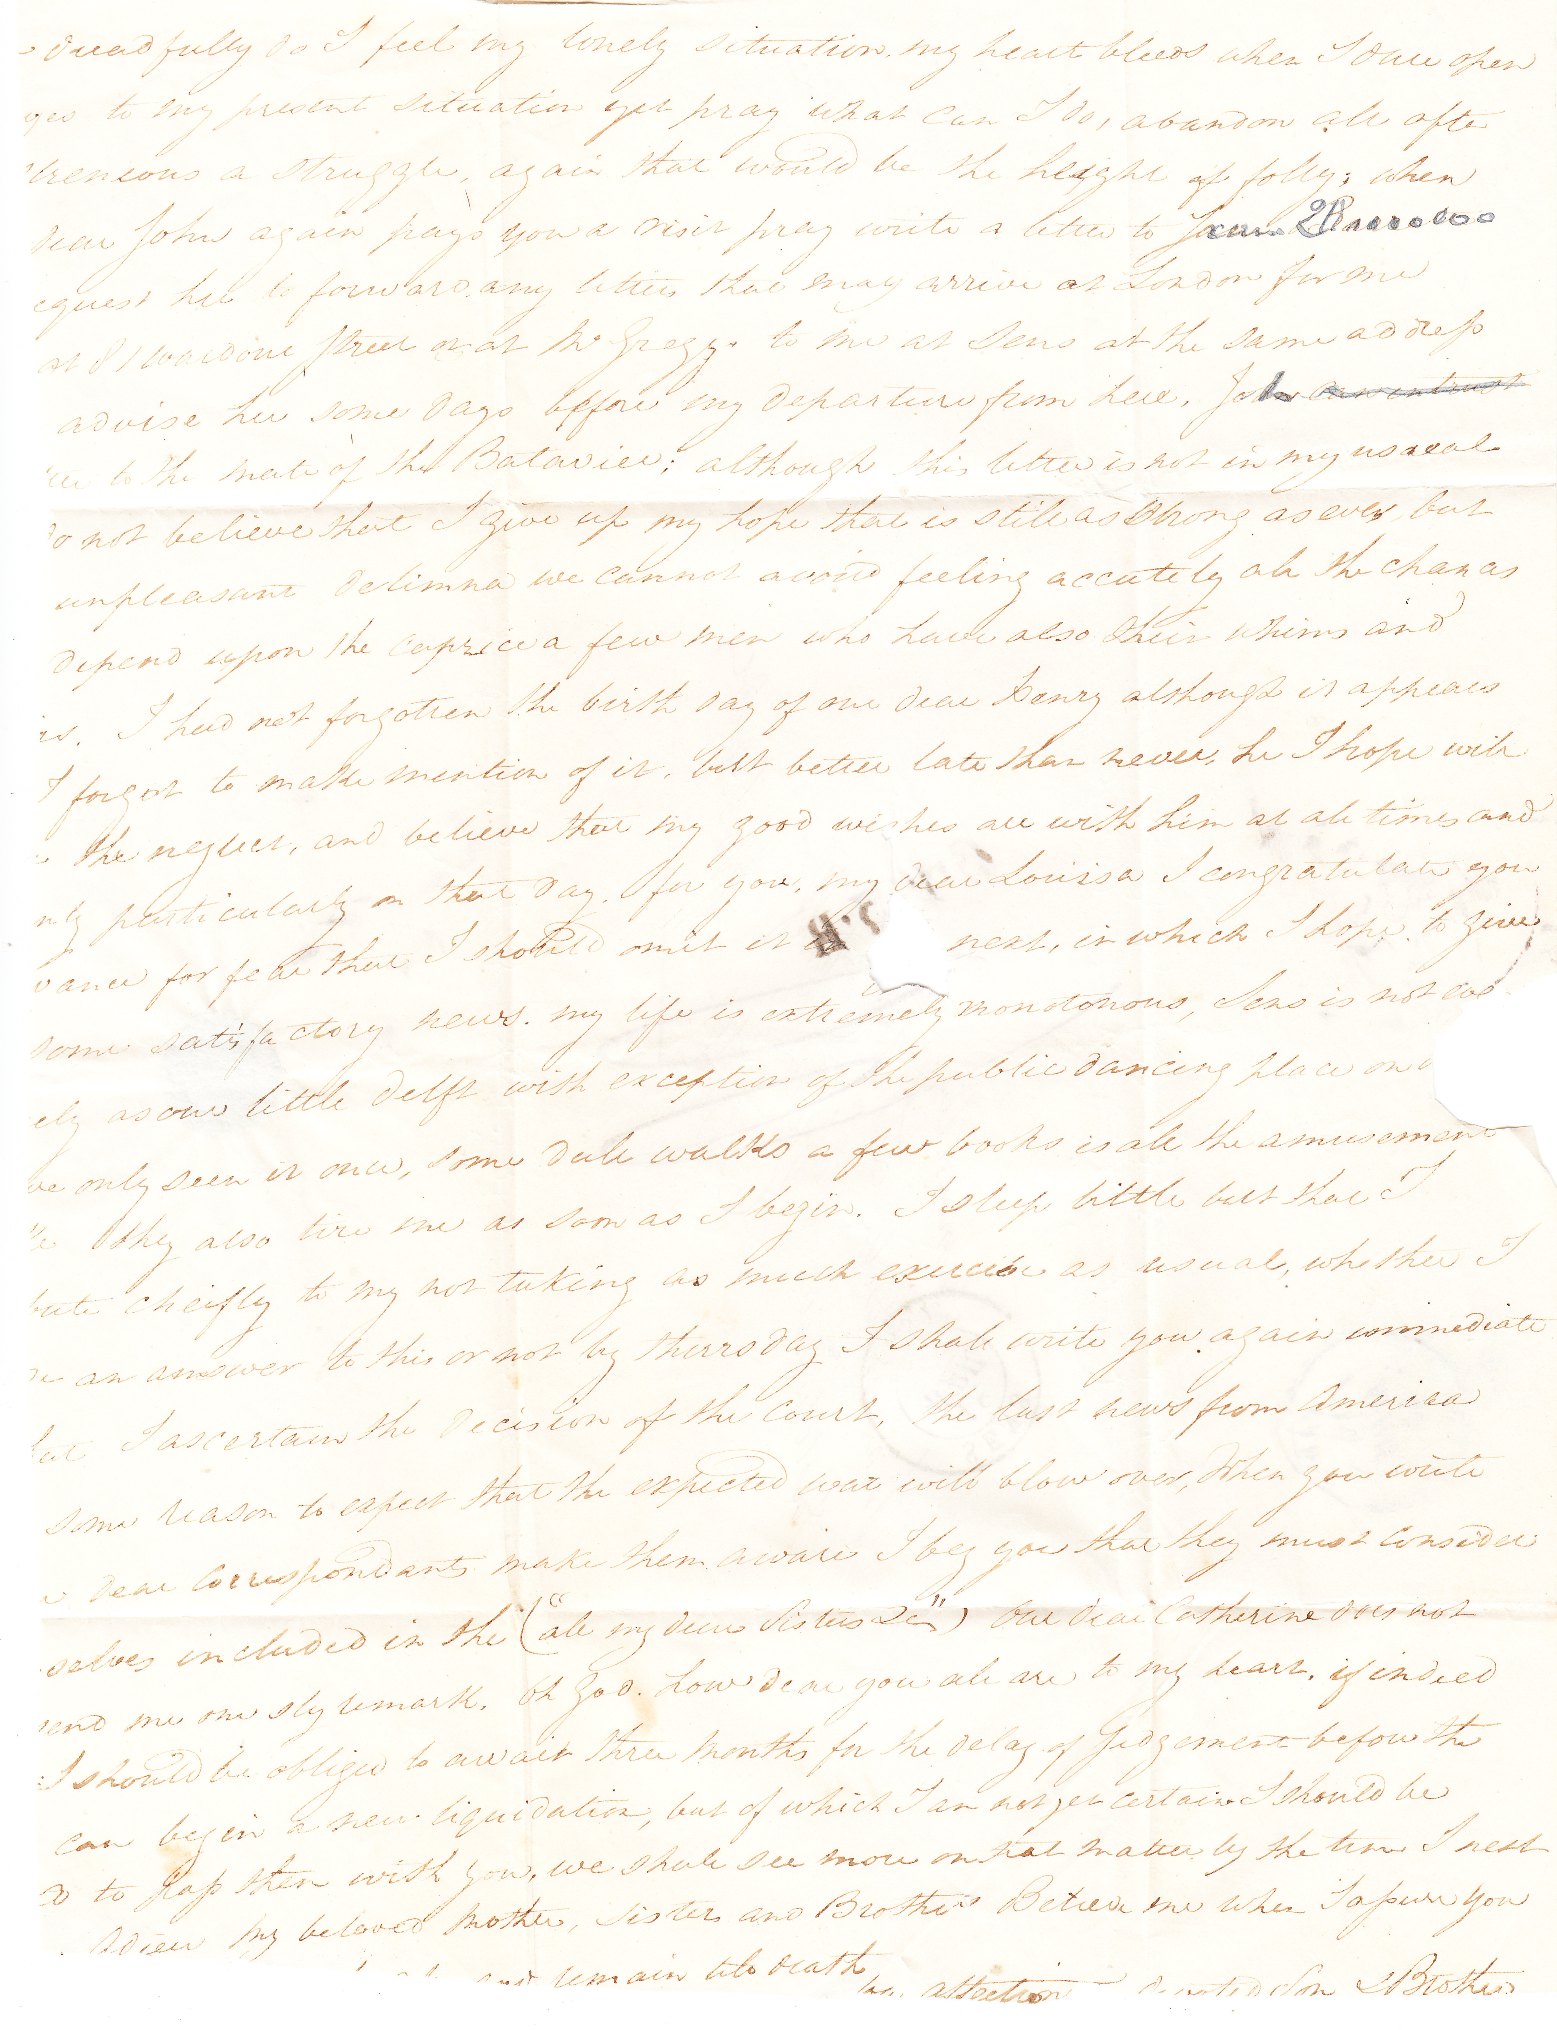 dreadfully do I feel my lonely situation. my heart bleeds when I dare open
yes to my present situation yet pray what can I do, abandon all afte
treneous a struggle, again that would be the height of folly; when
dear John again pays you a visit pray write a letter to
equest her to forward any letters that may arrive at London for me
at 81 street or at Mr Greggs. to me at Sens at the same address
advise her some days before my departure from here. John
to the mate of the Batavier; although this letter is not in my usueal
do not believe that I give up my hope that is still as strong as ever, but
unpleasant delimna we cannot avoid feeling accutely all the chan as
depend upon the caprice a few men who have also their whims and
rs. I had not forgotten the birth day of our dear Henry although it appears
I forgot to make mention of it, but better late than never, he I hope will
the neglect, and believe that my good wishes are with him at all times and
nly particularly on that day. for you, my dear Louisa I congratulate you
vance for fear that I should omit it in next, in which I hope to give
some satisfactory news. my life is extremely monotonous, Sens is not
ely as our little Delft with exception of the public dancing place on
ve only seen it once, some dull walks a few books is all the amusement
they also tire me as soon as I begin. I sleep little but that I
bute cheifly to my not taking as much exercise as usual, whether I
an answer to this or not by thursday I shall write you again immediate
I ascertain the decision of the Court, the last news from America
some reason to expect that the expected war will blow over, When you write
dear Correspondants make them aware I beg you that they must consider
selves included in the ("all my dear Sisters &c") Our dear Catherine does not
send me one sly remark. Oh God. how dear you all are to my heart. if indeed
I should be obliged to await three months for the delay of Judgement before the
can begin a new liquidation, but of which I am not yet certain I should be
d to pass them with you, we shall see more on that matter by the time I next
Adieu my beloved Mother, Sisters and Brothers Believe me when I assure you
and remain till death
affection devoted Son & Brother